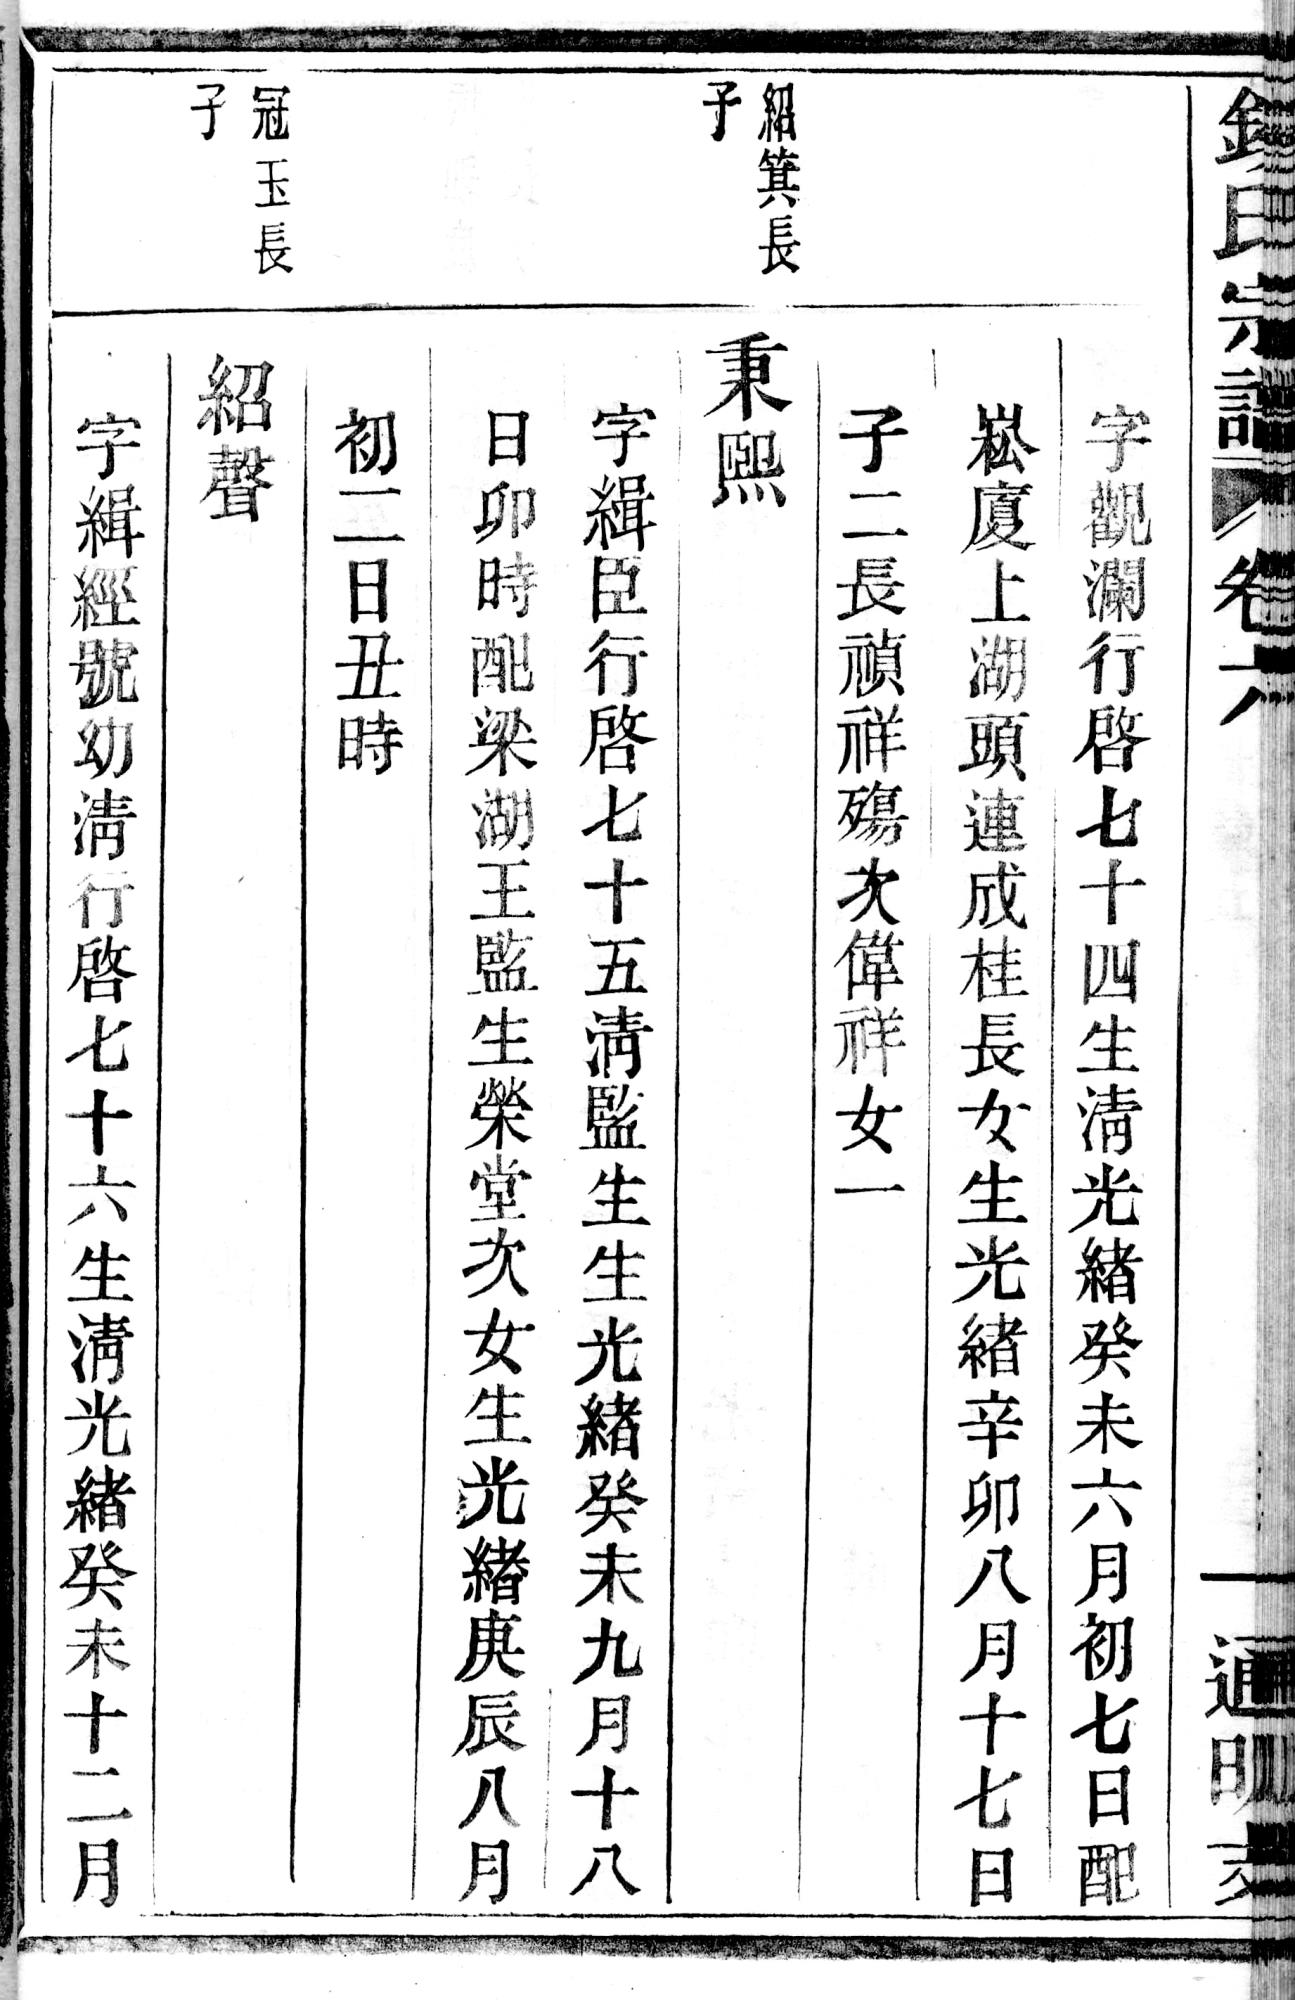 氏宗譜
卷
通明支
字觀瀾行啓七十四生清光緒癸未六月初七日配
崧廈上湖頭連成桂長女生光緒辛卯八月十七日
子二長禎祥殤次偉祥女一
紹箕長
子
秉熙
字緝臣行啓七十五清監生生光緒癸未九月十八
日卯時配梁湖王監生榮堂次女生光緒庚辰八月
初二日丑時
冠玉長
子
紹聲
字緝經號幼清行啓七十六生清光緒癸未十二月